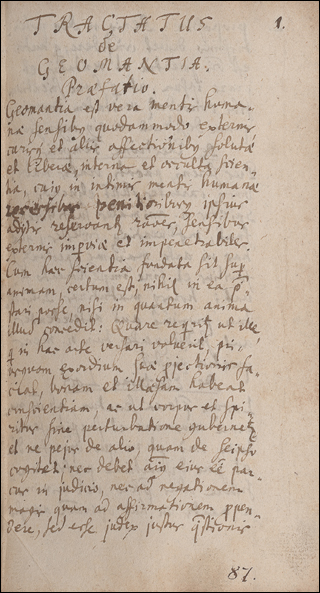 TRACTATUS
1.
de
GEOMANTIA.
Præfatio.
Geomantia est vera mentis huma-
næ sensibus quodammodo externis
curis et aliis affectionibus solutæ
et liberæ, interna et occulta scien-
tia, cuius in intimis mentis humanæ
recessibus penitioribus ipsius
aditus reservantur, sensibus
externis imperviæ et impenetrabiles.
Cum hæc scientia fundata sit sup
animam, certum est, nihil in ea
stari posse, nisi in quantum anima
illius concedit: Quare requirit ut ille
q in hac arte versari voluerit, pri-
usquam exordium suæ projectionis fa-
ciat, bonam et illæsam habeat
conscientiam, ac ut corpus et spi-
ritus sine perturbatione gubernet
et ne pejus de alio, quam de seipso
cogitet: nec debet eius esse par-
cus in judicio, nec ad negationem
magis quam ad affirmationem propen-
dere, sed esse judex justus qstionis
87.